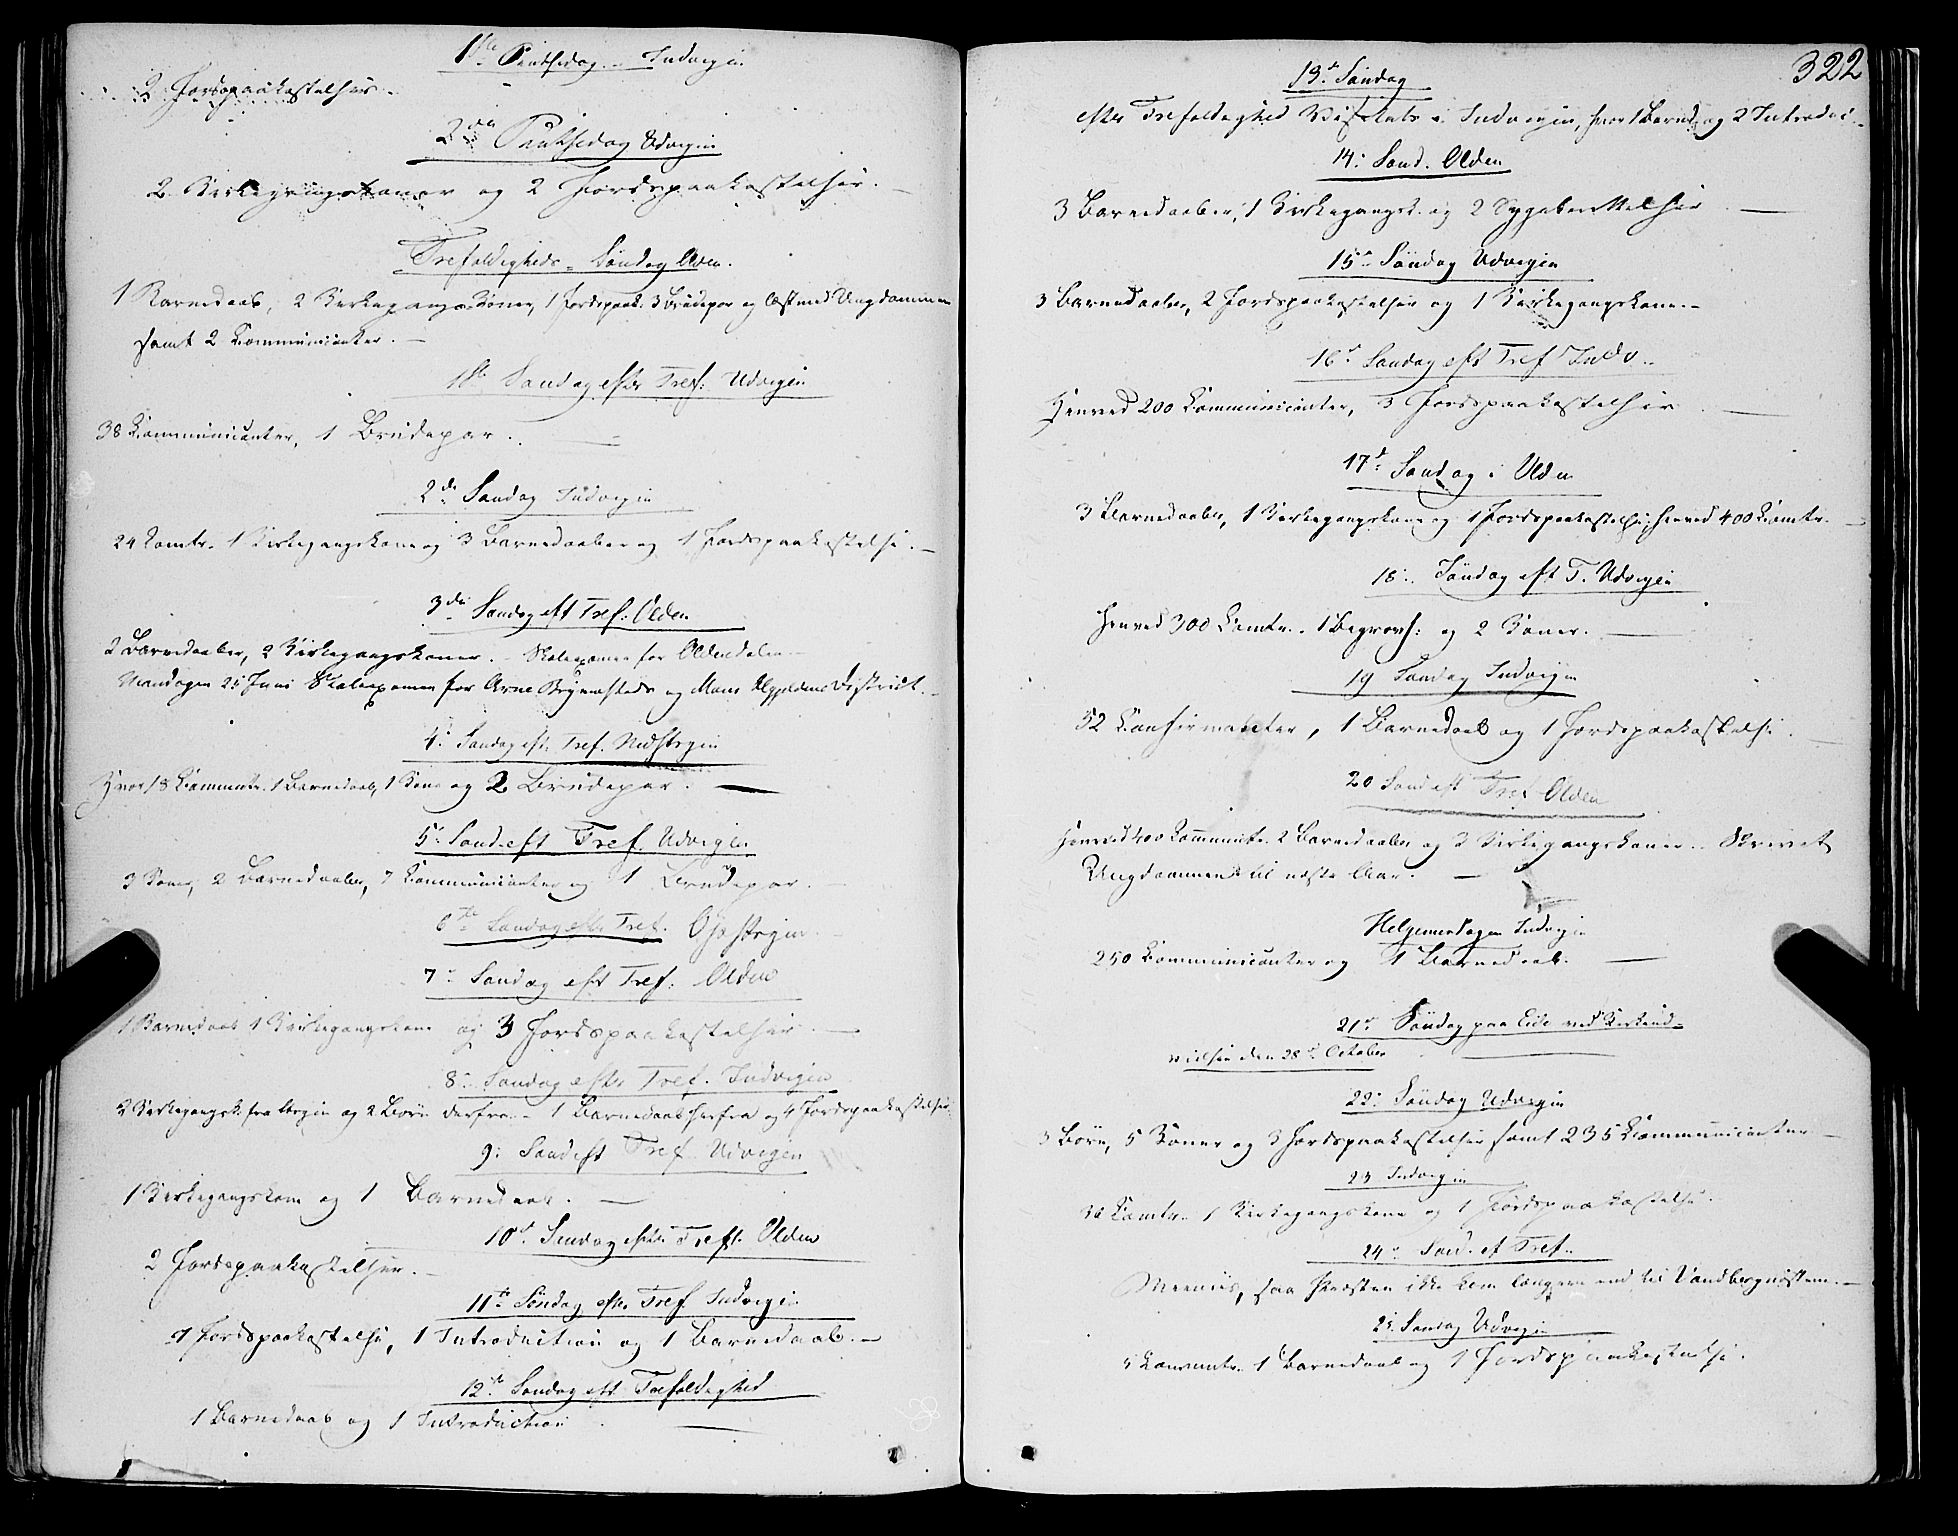 1ste Pintsedag - Indvigen
2 Jordspaakastelser.
2den Pintsedag Udvigen
2 Kirkegangskoner og 2 Jordspaakastelser. —
Trefoldigheds-Søndag Olden.
1 Barnedaab, 2 Kirkegangskoner, 1 Jordspaak. 3 Brudepar og læst med Ungdommen
samt 2 Communicanter. —
1ste Søndag efter Tref: Udvigen
38 Communicanter, 1 Brudepar. —
2de Søndag Indvigen
24 Comtr. 1 Kirkegangskone og 3 Barnedaaber og 1 Jordspaakastelse. —
3die Søndag eft Tref: Olden
2 Barnedaaber, 2 Kirkegangskoner. - Skoleexamen for Oldendalen —
Mandagen 25 Juni Skoleexamen for Arne og Mons District. —
4: Søndag eft. Tref. Nedstryn
Hvor 18 Communtr. 1 Barnedaab, 1 Kone og 2 Brudepar. —
5: Sønd. eft Tref. Udvigen
3 Koner, 2 Barnedaaber, 7 Communicanter og 1 Brudepar. —
6te Søndag efter Tref. Opstryn. —
7: Søndag eft Tref: Olden
1 Barnedaab 1 Kirkegangskone og 3 Jordspaakastelser. —
8: Søndag efter Tref. Indvigen
2 Kirkegangsk. fra Stryn og 2 Børn derfra. - 1 Barnedaab herfra og 4 Jordspaakastelser.
9: Sønd eft Tref. Udvigen
1 Kirkegangskone og 1 Barnedaab. —
10d. Søndag efter Tref. Olden
2 Jordspaakastelser. —
11te Søndag efter Tref Indvigen
1 Jordspaakastelse, 1 Introduction og 1 Barnedaab. —
12te Søndag eft Trefoldighed
1 Barnedaab og 1 Introduction. —
322
13d Søndag
efter Trefoldighed Visitats i Indvigen, hvor 1 Barned. og 2 Introduc.
14: Sønd. Olden
3 Barnedaaber, 1 Kirkegangsk. og 2 Sygeberettelser. —
15d Søndag Udvigen
3 Barnedaaber, 2 Jordspaakastelser og 1 Kirkegangskone. —
16d Søndag eft Tref Indv.
Henved 200 Communicanter, 3 Jordspaakastelser. —
17d Søndag i Olden
3 Barnedaaber, 1 Kirkegangskone og 1 Jordspaakastelse, henved 400 Comtr. —
18: Søndag eft T. Udvigen
Henved 300 Comtr. 1 Begravs: og 2 Koner. —
19 Søndag Indvigen
52 Confirmanter, 1 Barnedaab og 1 Jordspaakastelse. —
20 Sønd eft Tref Olden
Henved 400 Communtr. 2 Barnedaaber og 3 Kirkegangskoner. - Skrevet
Ungdommen til næste Aar. —
Helgemesdagen Indvigen
250 Communicanter og 1 Barnedaab. —
21d Søndag paa Eide ved Kirkeind-
vielsen den 28d October —
22: Søndag Udvigen
3 Børn, 5 Koner og 3 Jordspaakastelser samt 235 Communicanter —
23 Indvigen
Comtr. 1 Kirkegangskone og 1 Jordspaakastelse.
24d Sønd. ef Tref.
saa Præsten ikke kom længere end til —
25. Søndag Udvigen
5 Communtr. 1 Barnedaab og 1 Jordspaakastelse.